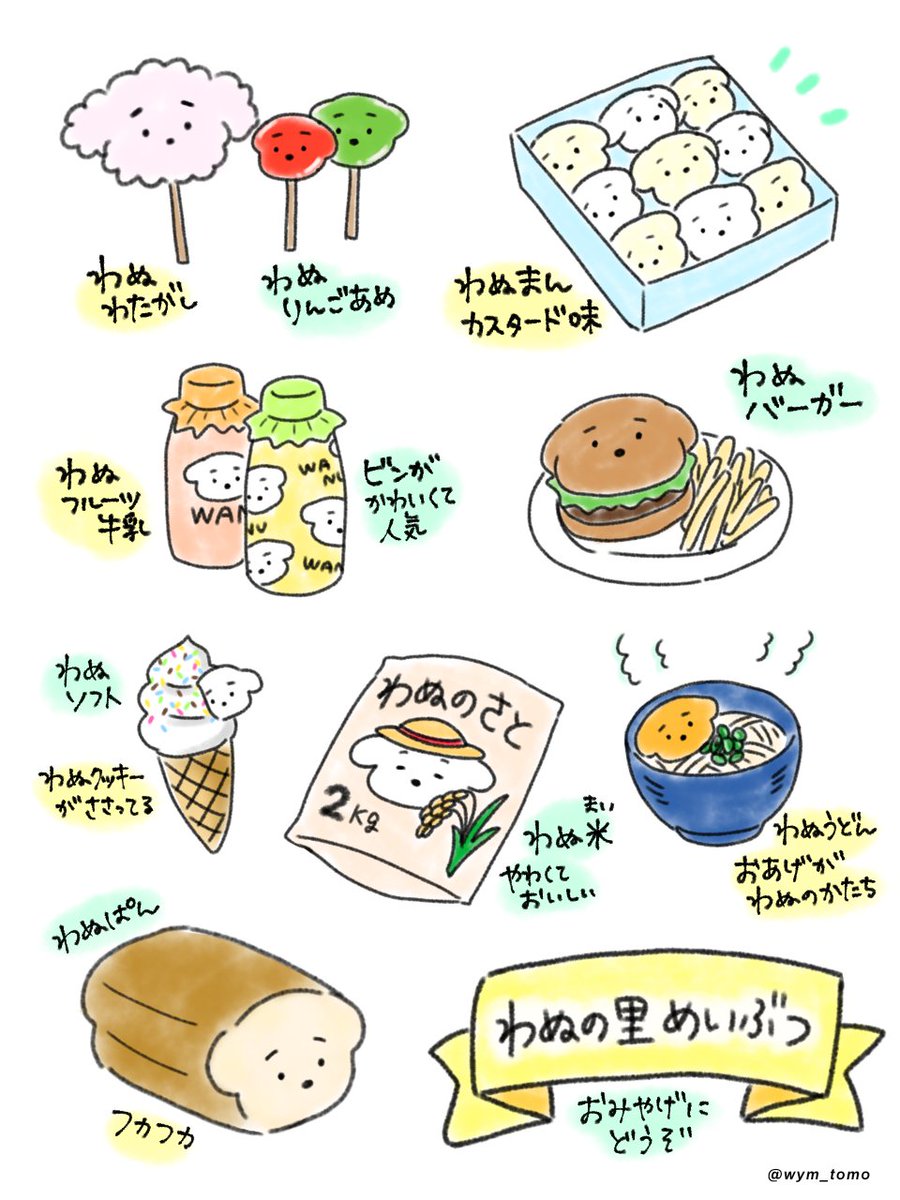 わぬ
わたがし
わぬ
りんごあめ
わぬまん
カスタード味
わぬ
フルーツ
牛乳
WAN
WA
NU
NU
WAN
ビンが
かわいくて
人気
わぬ
バーガー
わぬ
ソフト
わぬクッキー
がささってる
わぬのさと
2kg
まい
わぬ米
やわくて
おいしい
わぬうどん
おあげが
わぬのかたち
わぬぱん
フカフカ
わぬの里 めいぶつ
おみやげに
どうぞ
@wym_tomo